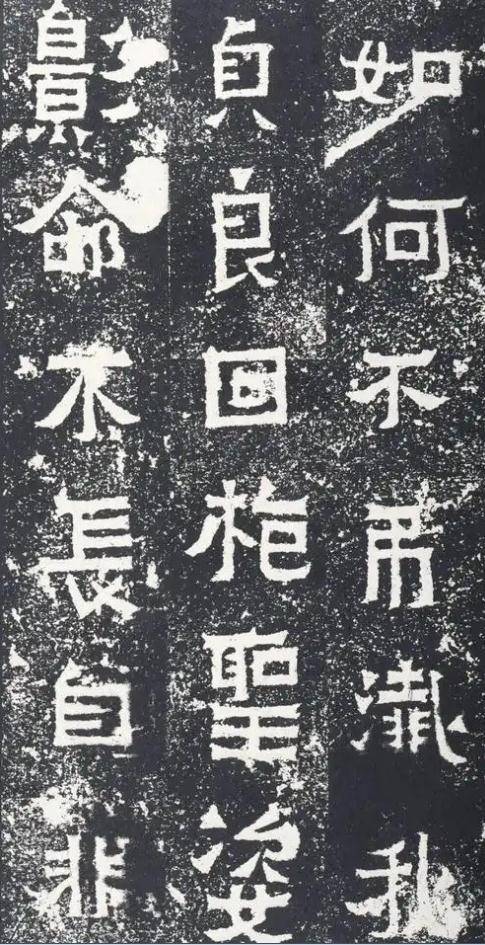 如何不弔瀸我
貞良回聖姿
影命不長自非